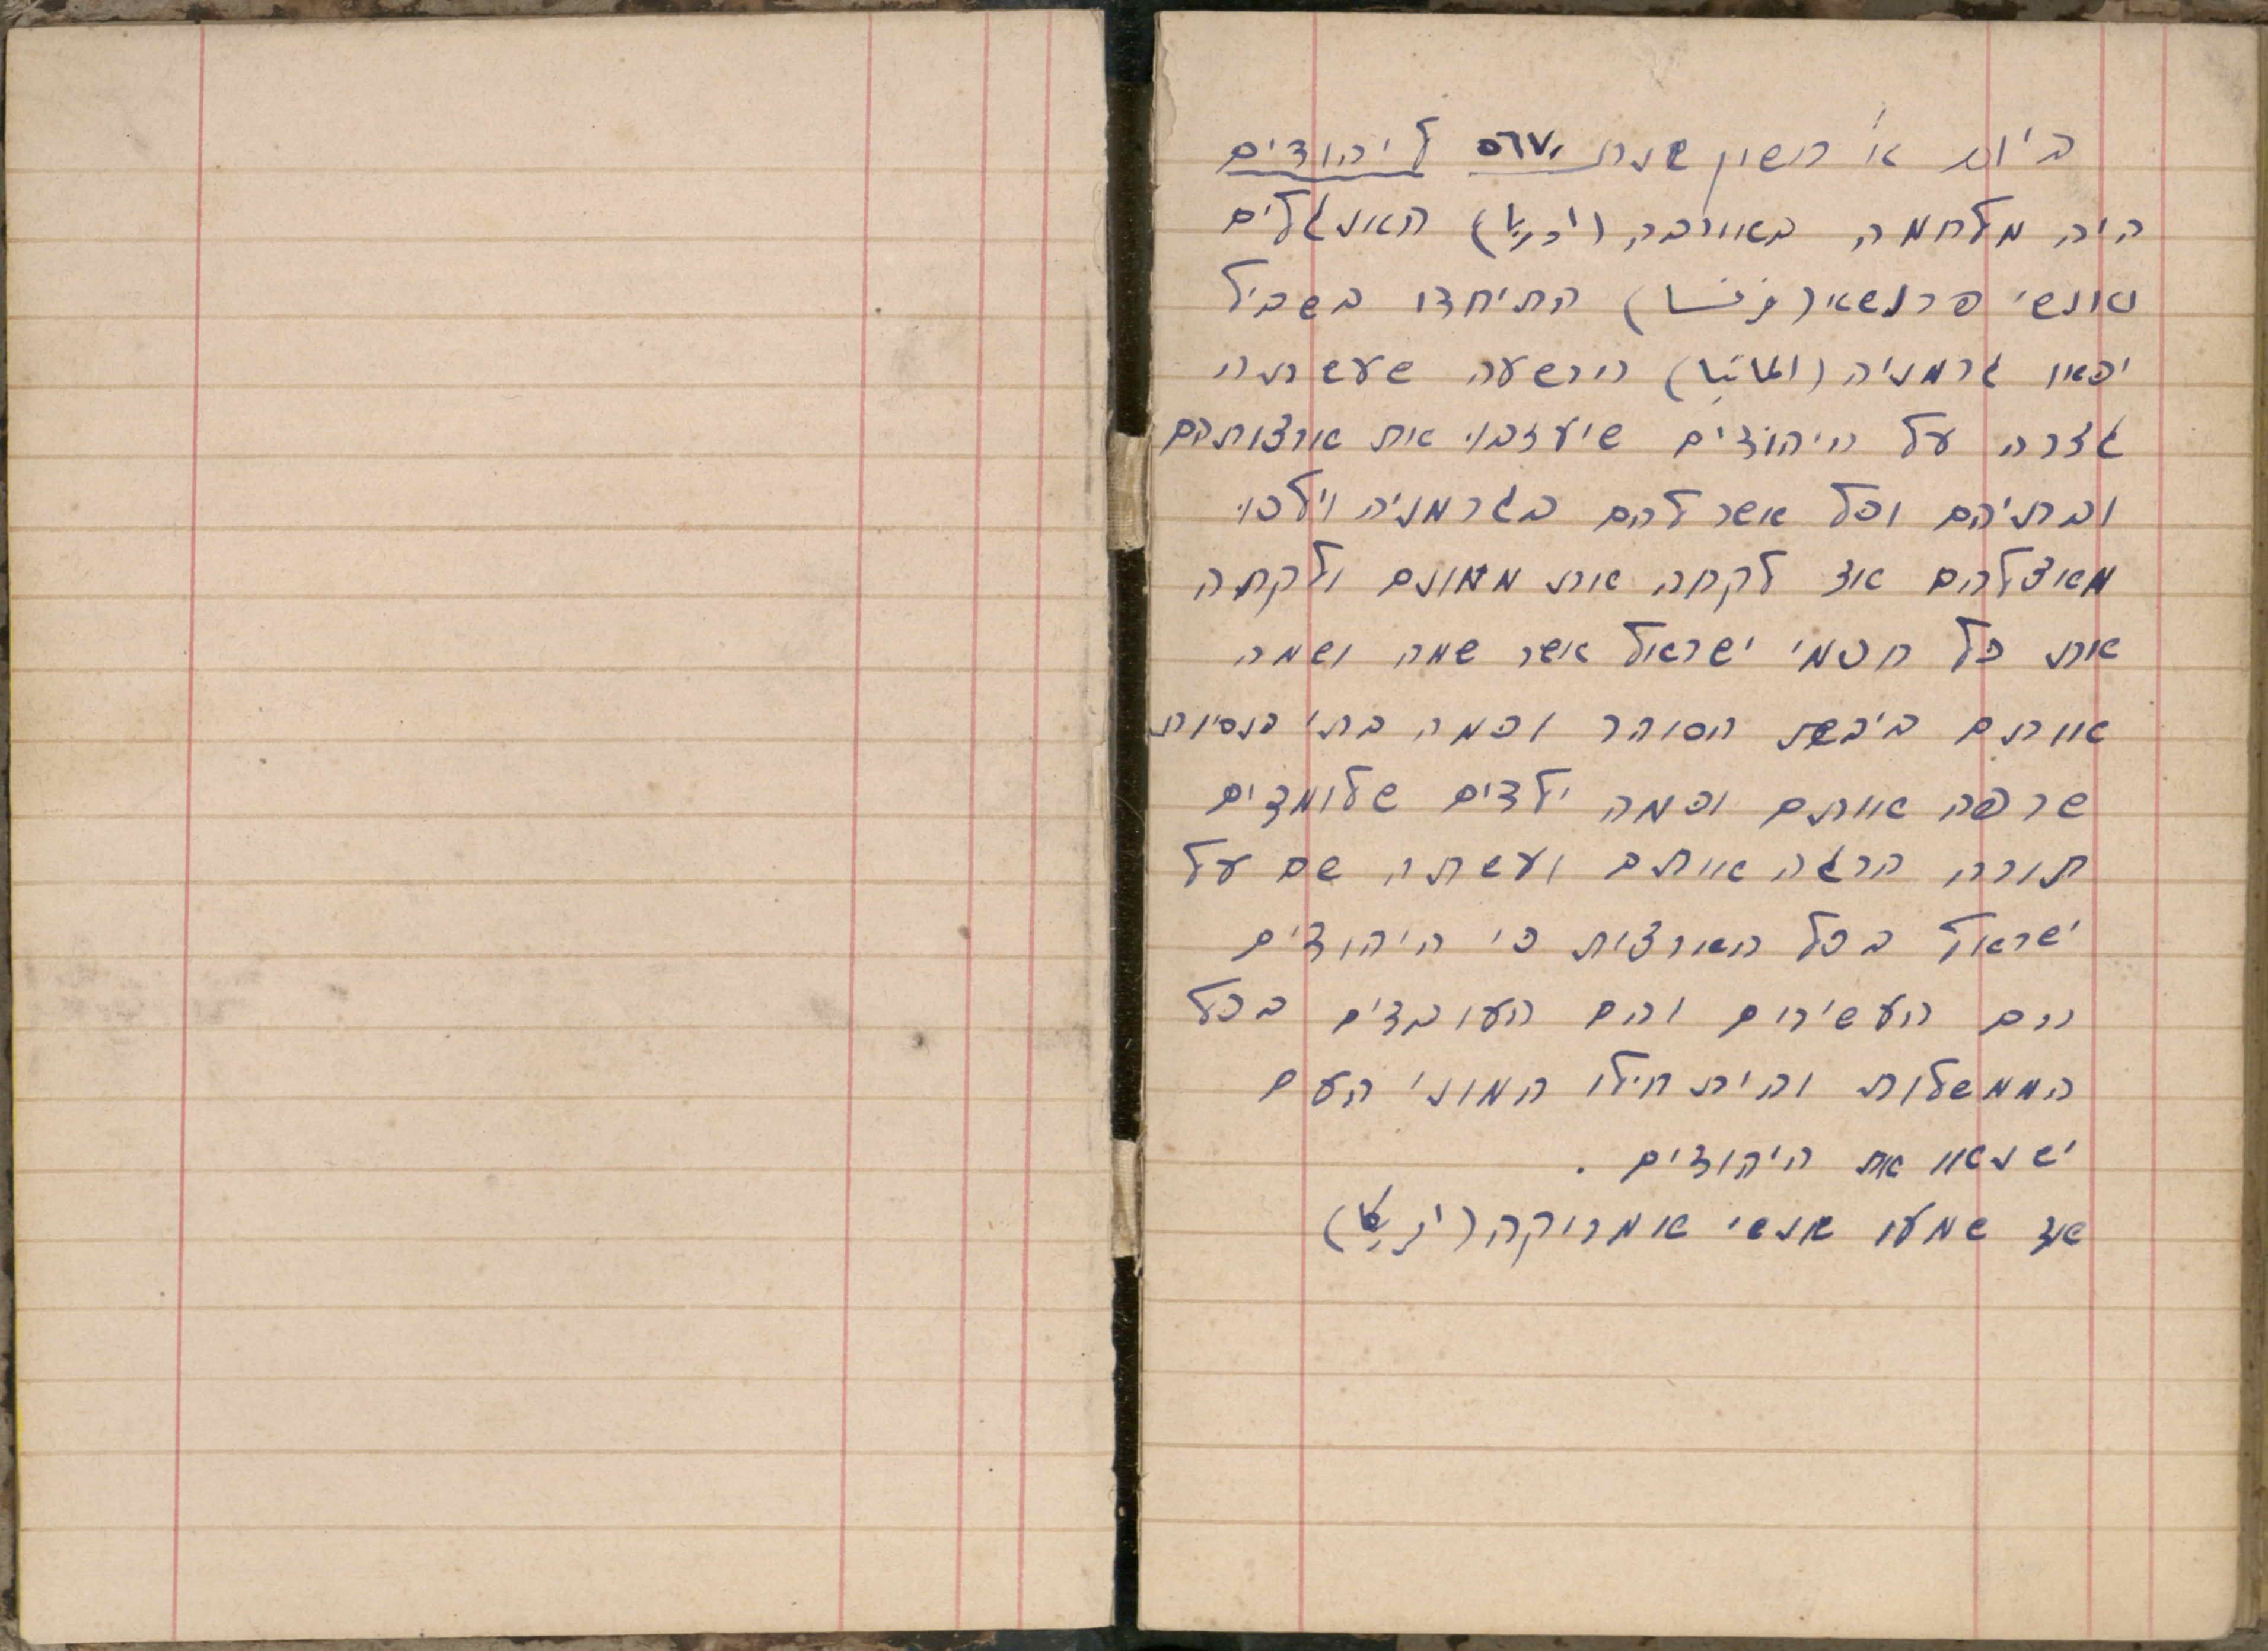 ביום א' חשון שנת ٥٦٧٠ ליהודים
היה מלחמה באוורבה (اوربا) האונגלים
ואנשי פרנשאי (فرنسا) התיחדו בשביל
יכאוו גרמניה (المانيا) הירשעה שעשתה
גזרה על היהודים שיעזבו את ארצותהם
ובתיהם וכל אשר להם בגרמניה וילכו
מאצלהם אז לקחה את ממונם ולקחה
את כל חכמי ישראל אשר שמה ושמה
אותם בבית הסוהר וכמה בתי כנסיות
שרפה אותם וכמה ילדים שלומדים
תורה הרגה אותם ועשתה שם על
ישראל בכל הארצות כי היהודים
הם העשירים והם העובדים בכל
הממשלות והית חילו המוני העם
ישנאו את היהודים .
אז שמעו אנשי אמריקה (امريكا)